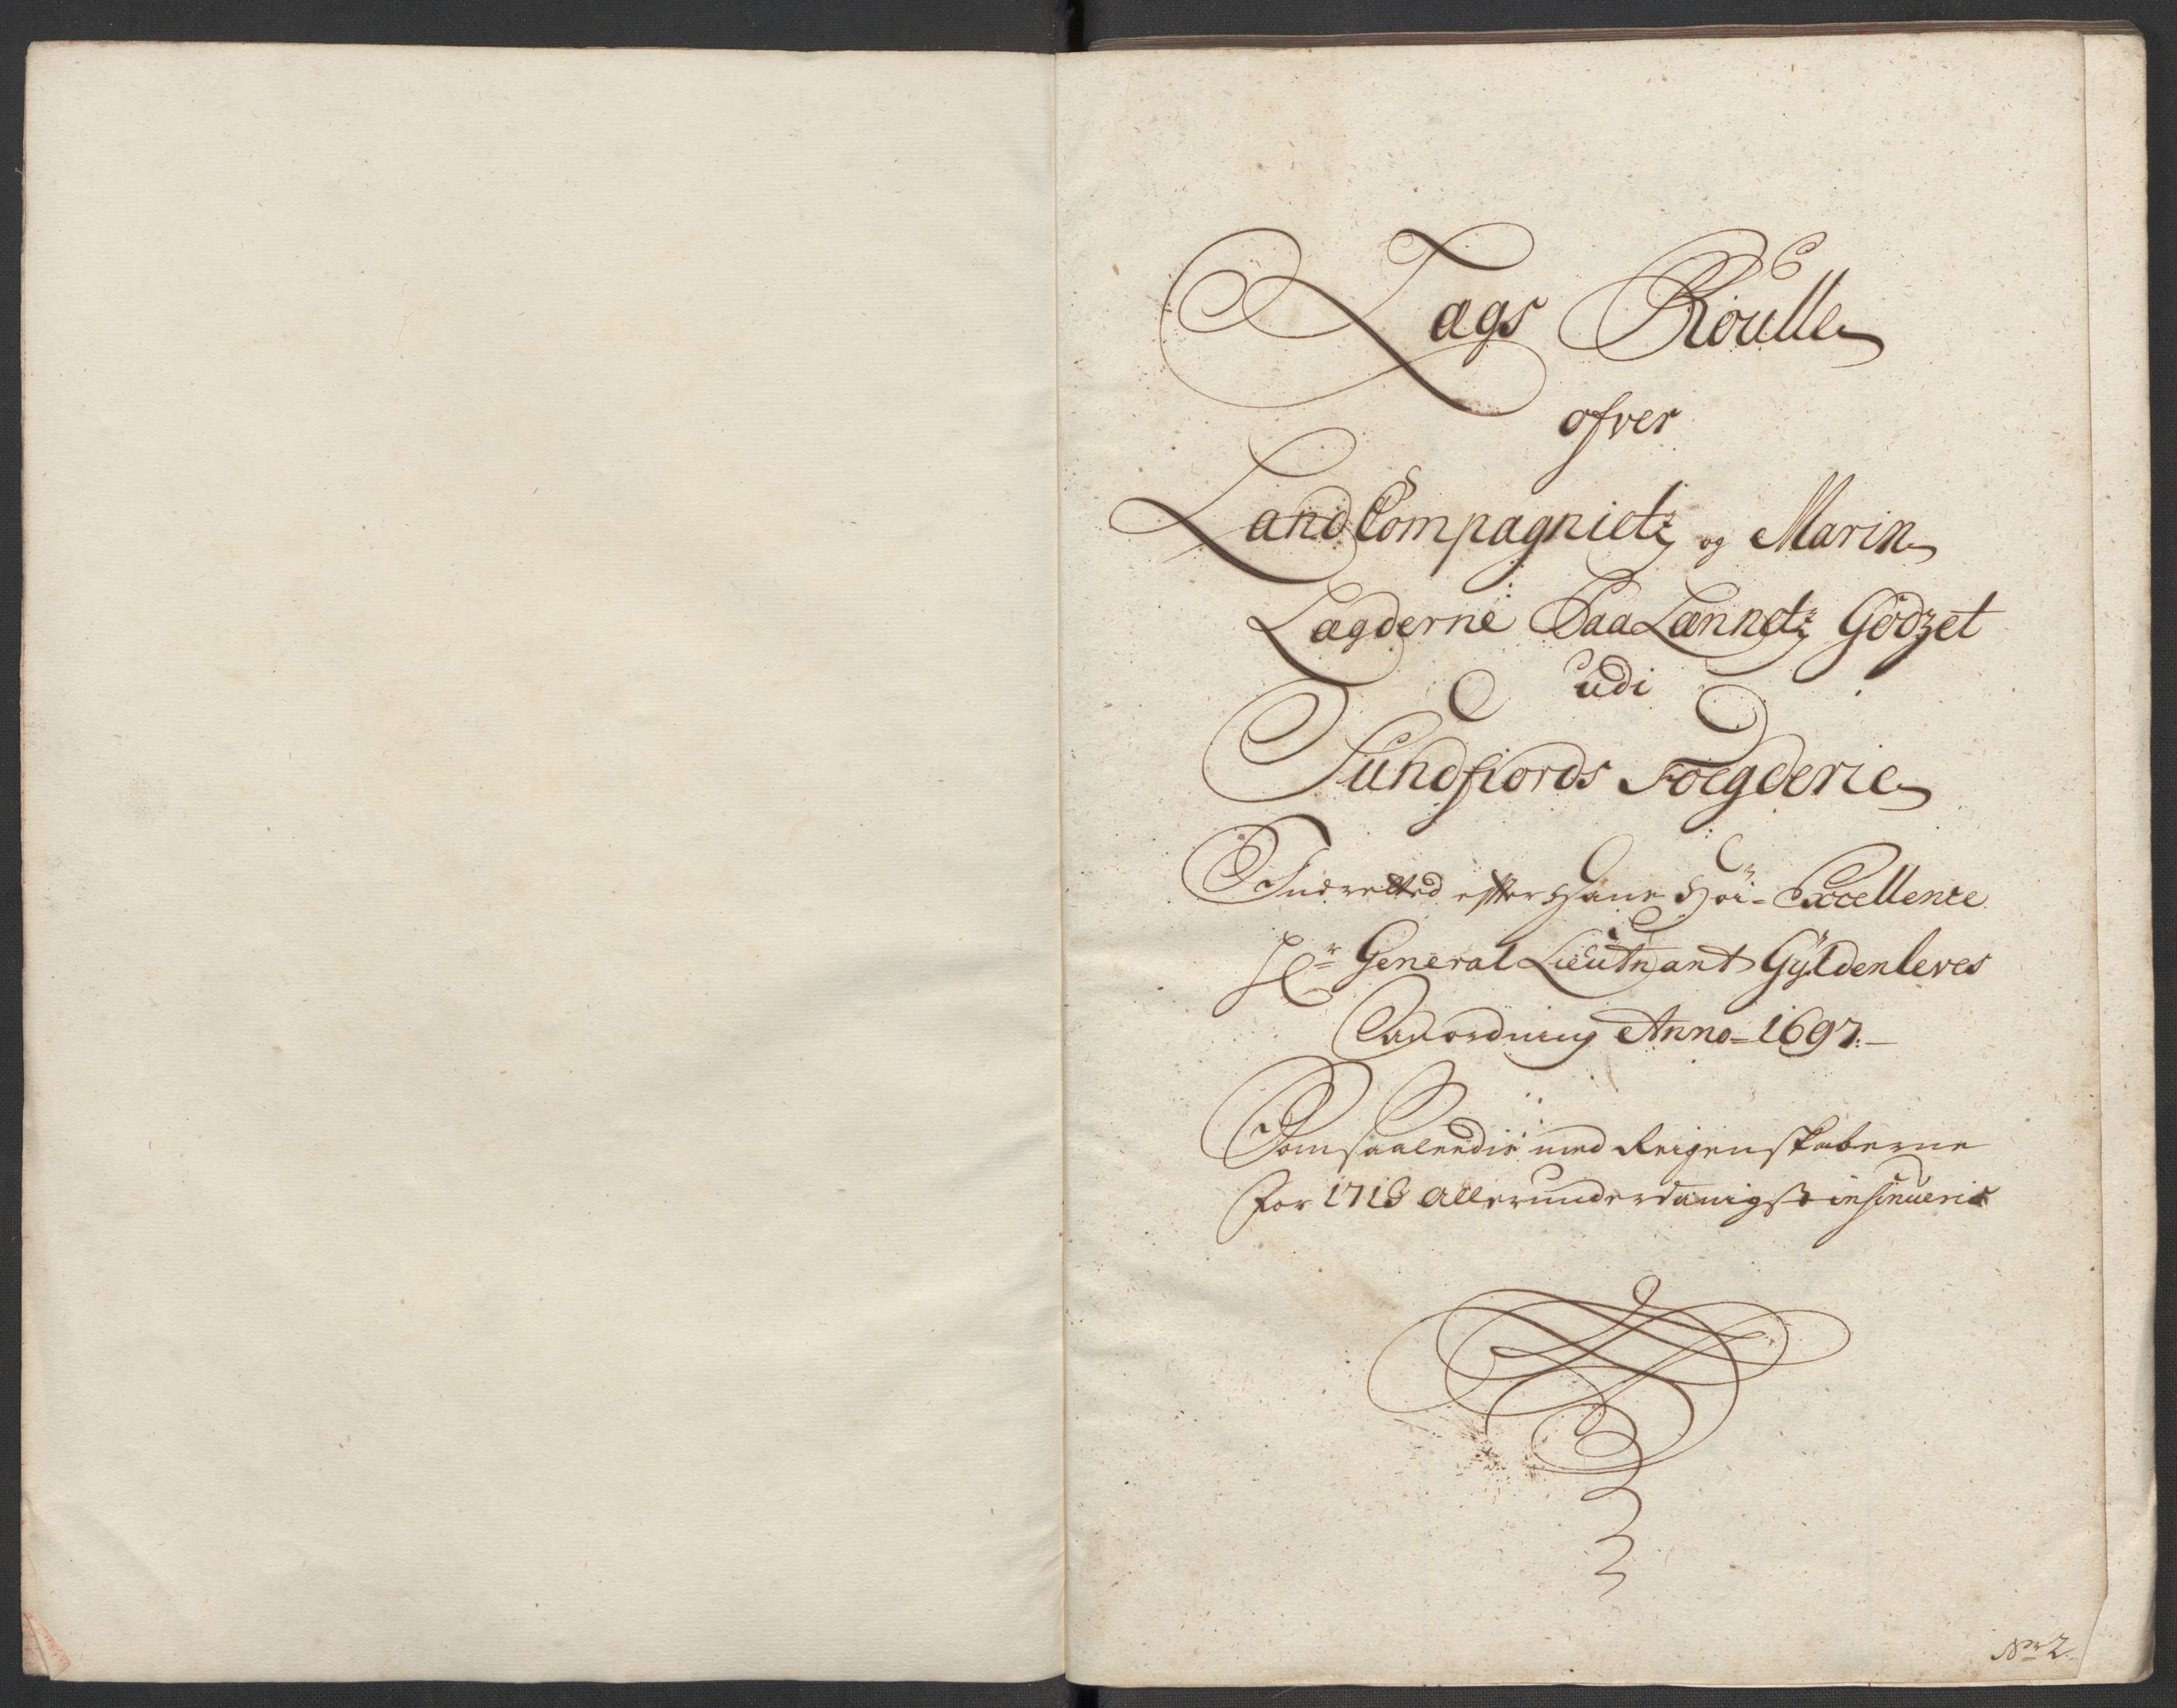 Lægs Roulle
ofver
Land Compagniets og Marin
Lægderne Paa Lænnets Godzet
udi
Sundfiords Foegderie
Indretted efter Hans Høi-Excellence
Hr General Lieutnant Gÿldenleves
Anordning Anno-1697.
Som saaleedis med Reigenskaberne
for 1718 Allerunderdanigst insinueris
No 2.